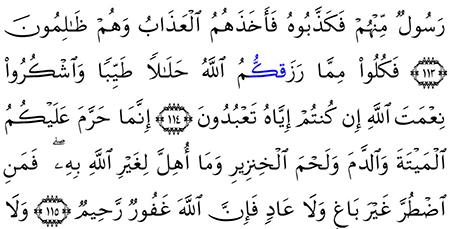 رَسُولٌ مِّنْهُمْ فَكَذَّبُوهُ فَأَخَذَهُمُ ٱلْعَذَابُ وَهُمْ ظَـٰلِمُونَ
﴿١١٣﴾ فَكُلُوا۟ مِمَّا رَزَقَكُمُ ٱللَّهُ حَلَـٰلًا طَيِّبًا وَٱشْكُرُوا۟
نِعْمَتَ ٱللَّهِ إِن كُنتُمْ إِيَّاهُ تَعْبُدُونَ ﴿١١٤﴾ إِنَّمَا حَرَّمَ عَلَيْكُمُ
ٱلْمَيْتَةَ وَٱلدَّمَ وَلَحْمَ ٱلْخِنزِيرِ وَمَآ أُهِلَّ لِغَيْرِ ٱللَّهِ بِهِۦ ۖ فَمَنِ
ٱضْطُرَّ غَيْرَ بَاغٍ وَلَا عَادٍ فَإِنَّ ٱللَّهَ غَفُورٌ رَّحِيمٌ ﴿١١٥﴾ وَلَا